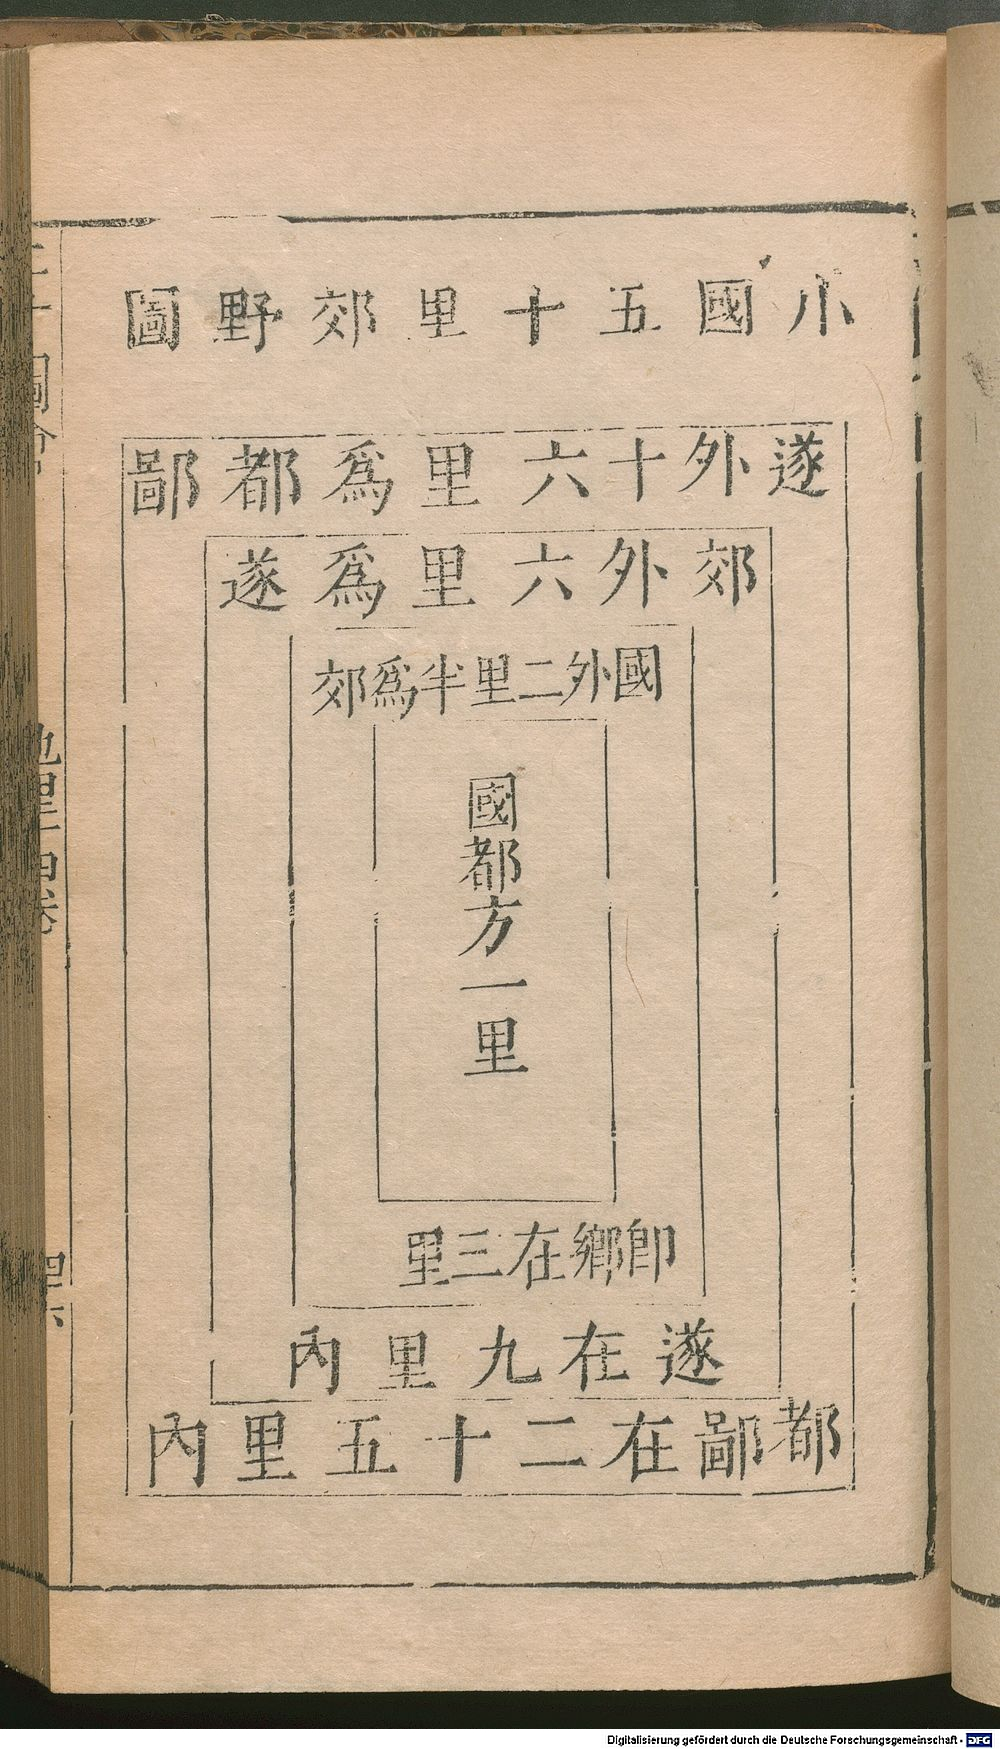 小國五十里郊野圖
遂外十六里爲都鄙
郊外六里爲遂
國外二里半爲郊
國都方一里
即鄉在三里
遂在九里內
都鄙在二十五里內
地里十四卷
Digitalisierung gefördert durch die Deutsche Forschungsgemeinschaft - DFG